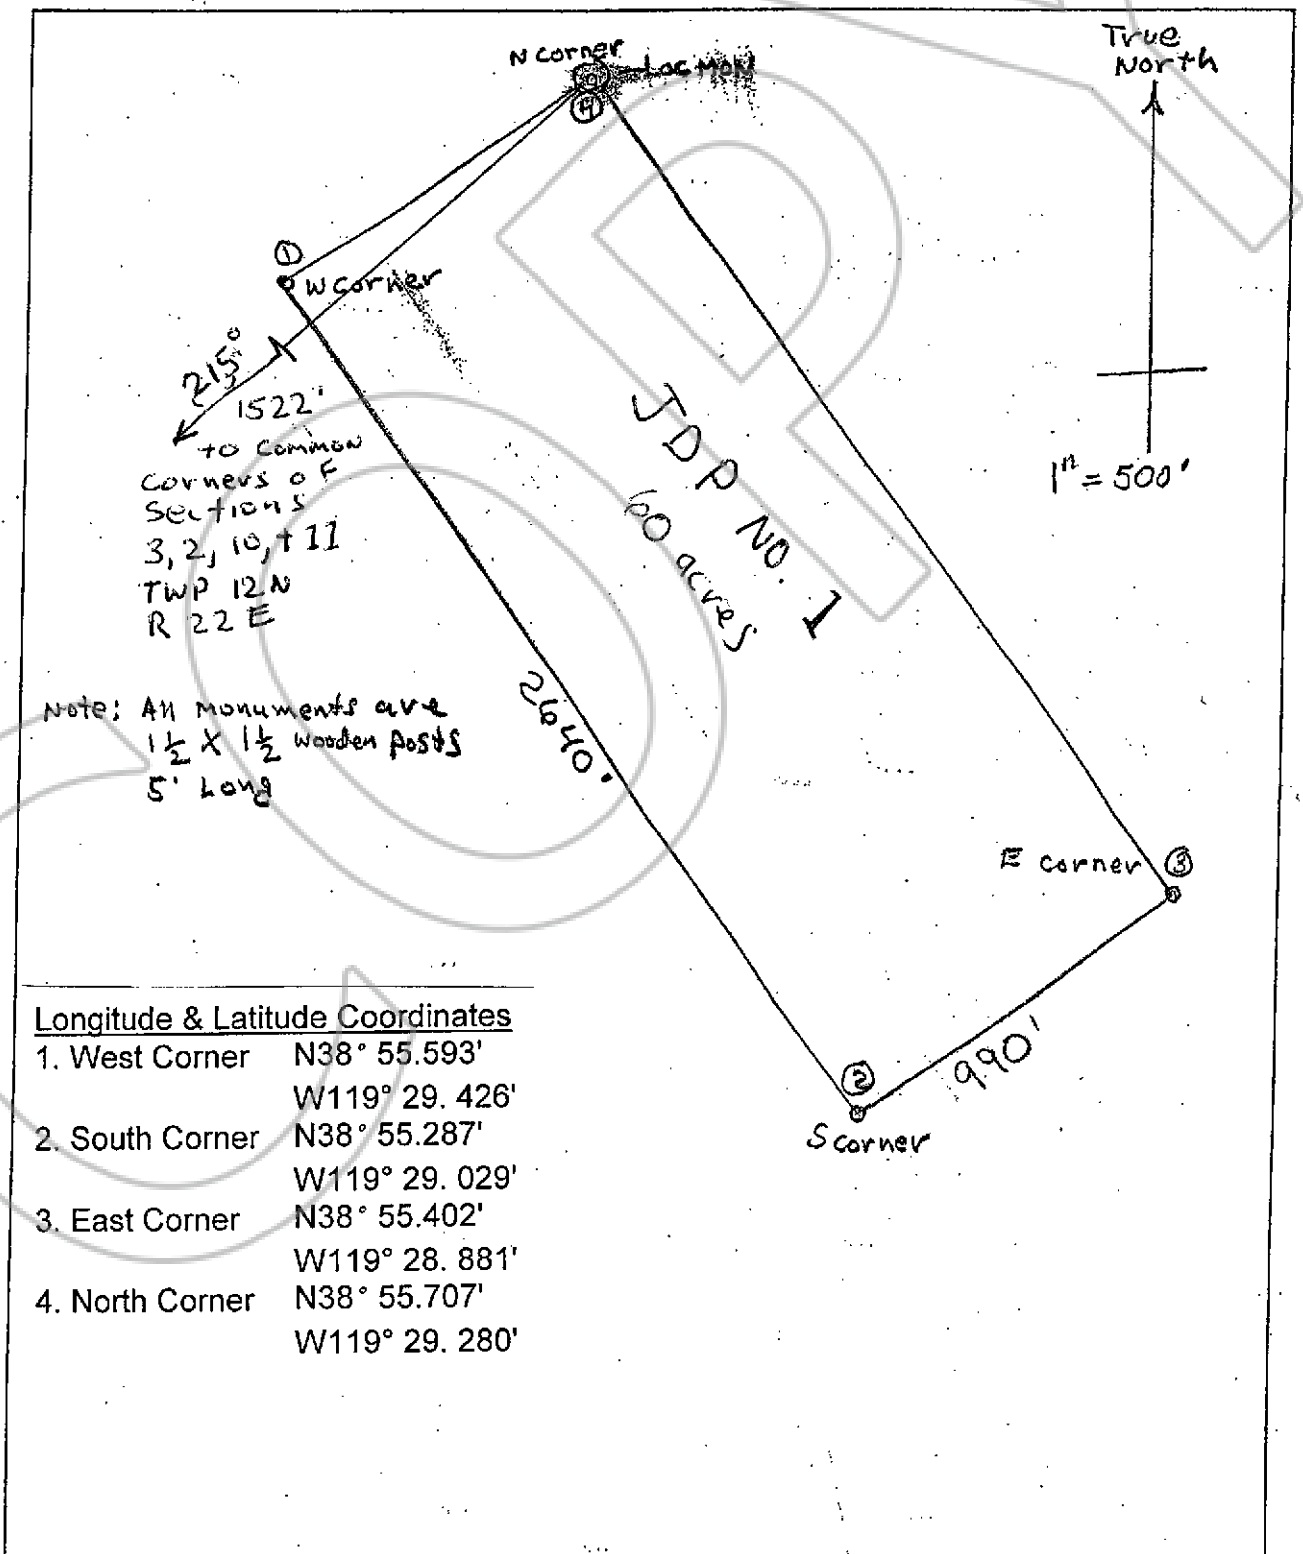 N corner
Loc MON
4
True
North
1" = 500'
1
W corner
215°
1522'
to common
corners of
Sections
3, 2, 10, + 11
TWP 12 N
R 22 E
JDP NO. 1
60 acres
Note: All Monuments are
1 1/2 X 1 1/2 wooden posts
5' Long
2640'
E corner
3
990'
2
S corner
Longitude & Latitude Coordinates
1. West Corner N38° 55.593'
W119° 29. 426'
2. South Corner N38° 55.287'
W119° 29. 029'
3. East Corner N38° 55.402'
W119° 28. 881'
4. North Corner N38° 55.707'
W119° 29. 280'
COPY